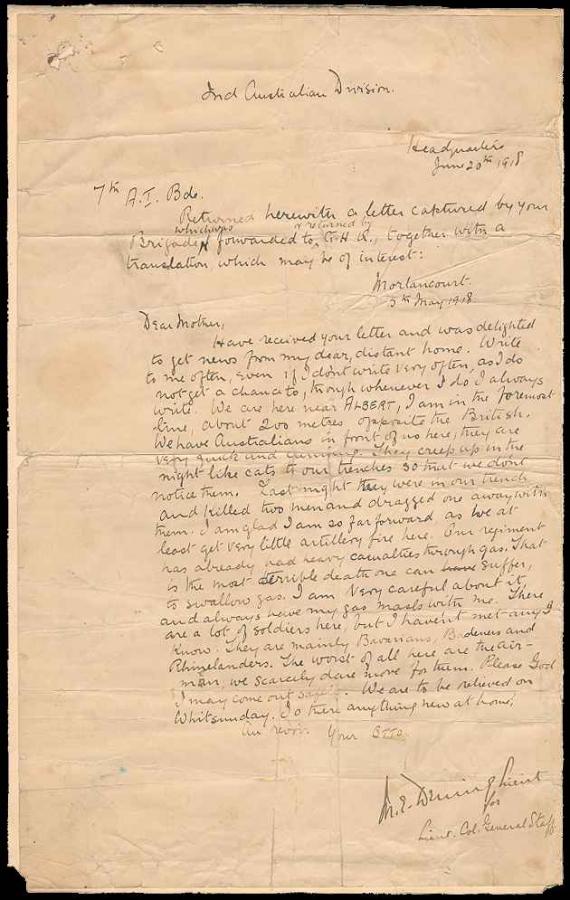 2nd Australian Division.
Headquarters
June 20th 1918
7th A.I. Bde.
Returned herewith a letter captured by your
which was & returned by
Brigade, forwarded to G.H.Q., together with a
translation which may be of interest:
Morlancourt
5th May 1918
Dear Mother,
Have received your letter and was delighted
to get news from my dear, distant home. Write
to me often, even if I dont write very often, as I do
not get a chance to, though whenever I do I always
write. We are here near ALBERT, I am in the foremost
line, about 200 metres opposite the British.
We have Australians in front of us here, they are
very quick and cunning. They creep up in the
night like cats to our trenches so that we dont
notice them. Last night they were in our trench
and killed two men and dragged one away with
them. I am glad I am so far forward as we at
least get very little artillery fire here. Our regiment
has already had heavy casualties through gas. That
is the most terrible death one can have suffer,
to swallow gas. I am very careful about it,
and always have my gas mask with me. There
are a lot of soldiers here, but I havent met any I
know. They are mainly Bavarians, Badeners and
Rhinelanders. The worst of all here are the air-
men, we scarcely dare move for them. Please God
I may come out safely. We are to be relieved on
Whitsunday. Is there anything new at home.
Au revoir. Your OTTO
Lieut
for
Lieut. Col. General Staff